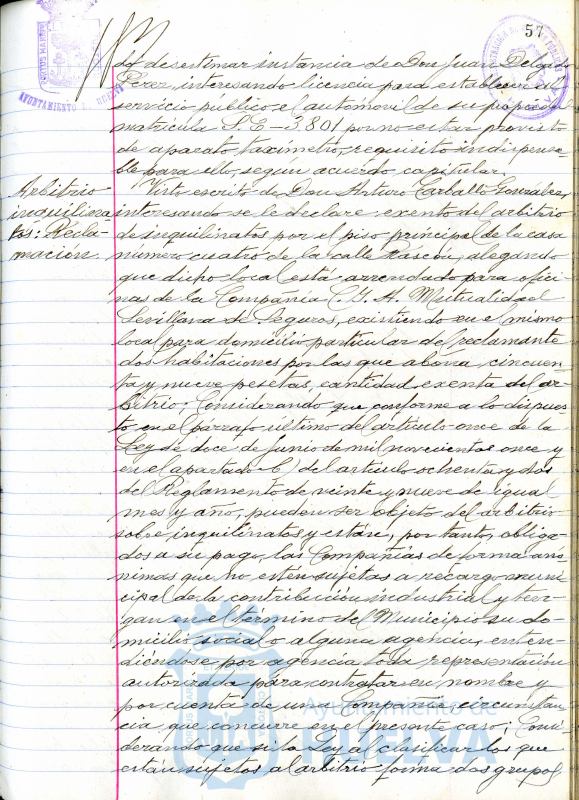 57
AYUNTAMIENTO DE HUELVA
do desestimar instancia de Don Juan Delgado
Perez, interesando licencia para establecer al
servicio publico el automovil de su propiedad
matrícula S.E-3.801 por no estar provisto
de aparato taxímetro, requisito indispensa-
ble para ello, según acuerdo capitular.
Arbitrio
inquilina-
tos: Recla-
mación.
Visto escrito de Don Arturo Carballo Gonzalez,
interesando se le declare exento del arbitrio
de inquilinatos por el piso principal de la casa
número cuatro de la calle Rascón, alegando
que dicho local está arrendado para ofici-
nas de la Compañia C.Y.A. Mutualidad
Sevillana de Seguros, existiendo en el mismo
local para domicilio particular del reclamante
dos habitaciones por las que abona cincuen-
ta y nueve pesetas, cantidad exenta del ar-
bitrio: Considerando que conforme a lo dispues-
to en el párrafo último del artículo once de la
Ley de doce de Junio de mil novecientos once y
en el apartado b) del artículo ochenta y dos
del Reglamento de veinte y nueve de igual
mes y año, pueden ser objeto del arbitrio
sobre inquilinatos y están, por tanto, obliga-
dos a su pago, las Compañías de forma anó-
nimas que no estén sujetas a recargo muni-
cipal de la contribución industrial y ten-
gan en el término del Municipio su do-
micilio social o alguna agencia, enten-
diéndose por agencia toda representación
autorizada para contratar en nombre y
por cuenta de una Compañía, circunstan-
cia que concurre en el presente caso: Consi-
derando que si la Ley al clasificar los que
están sujetos al arbitrio forma dos grupos
Ayuntamiento de
HUELVA